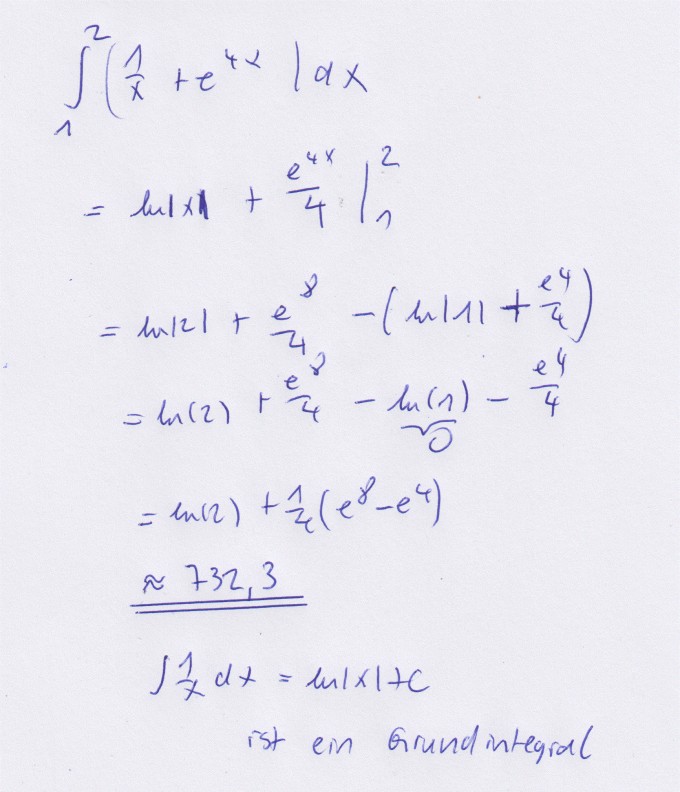 ∫₁² (1/x + e^{4x}) dx
= ln|x| + e^{4x}/4 |₁²
= ln|2| + e^8/4 - (ln|1| + e^4/4)
= ln(2) + e^8/4 - ln(1) - e^4/4
0
= ln(2) + 1/4 (e^8 - e^4)
≈ 732,3
∫ 1/x dx = ln|x| + C
ist ein Grundintegral